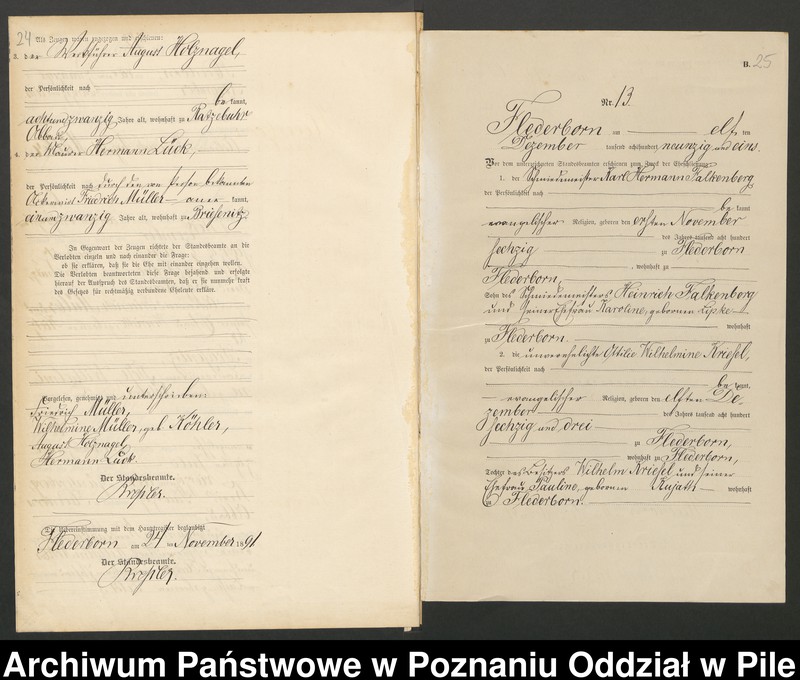 24
Als Zeugen waren zugezogen und erschienen:
3. der Werkführer August Holznagel,
der Persönlichkeit nach
be kannt,
achtundzwanzig Jahre alt, wohnhaft zu Ratzebuhr
Abbau,
4. der Klaurer Hermann Lück,
der Persönlichkeit nach durch den von Person bekannten
Friedrich Müller aner kannt,
einundzwanzig Jahre alt, wohnhaft zu Briesenitz
In Gegenwart der Zeugen richtete der Standesbeamte an die
Verlobten einzeln und nach einander die Frage:
ob sie erklären, daß sie die Ehe mit einander eingehen wollen.
Die Verlobten beantworteten diese Frage bejahend und erfolgte
hierauf der Ausspruch des Standesbeamten, daß er sie nunmehr kraft
des Gesetzes für rechtmäßig verbundene Eheleute erkläre.
Vorgelesen, genehmigt und unterschrieben:
Friedrich Müller,
Wilhelmine Müller, geb. Köhler,
August Holznagel,
Hermann Lück.
Der Standesbeamte.
Die Uebereinstimmung mit dem Hauptregister beglaubigt
Flederborn am 24 ten November 1891
Der Standesbeamte.
B. 25
Nr. 13.
Flederborn am elf ten
Dezember tausend achthundert neunzig und eins.
Vor dem unterzeichneten Standesbeamten erschienen zum Zweck der Eheschließung:
1. der Schmiedemeister Karl Hermann Falkenberg
der Persönlichkeit nach
be kannt
evangelischer Religion, geboren den ersten November
des Jahres tausend acht hundert
sechzig zu Flederborn
, wohnhaft zu
Flederborn,
Sohn des Schmiedemeisters Heinrich Falkenberg
und seiner Ehefrau Karoline, geborenen Lipke
wohnhaft
zu Flederborn.
2. die unverehelichte Ottilie Wilhelmine Kriesel,
der Persönlichkeit nach
be kannt,
evangelischer Religion, geboren den elften De-
zember des Jahres tausend acht hundert
sechzig und drei
zu Flederborn,
wohnhaft zu Flederborn,
Tochter des Besitzers Wilhelm Kriesel und seiner
Ehefrau Pauline, geborenen Rujath wohnhaft
zu Flederborn.
Archiwum Państwowe w Poznaniu Oddział w Pile